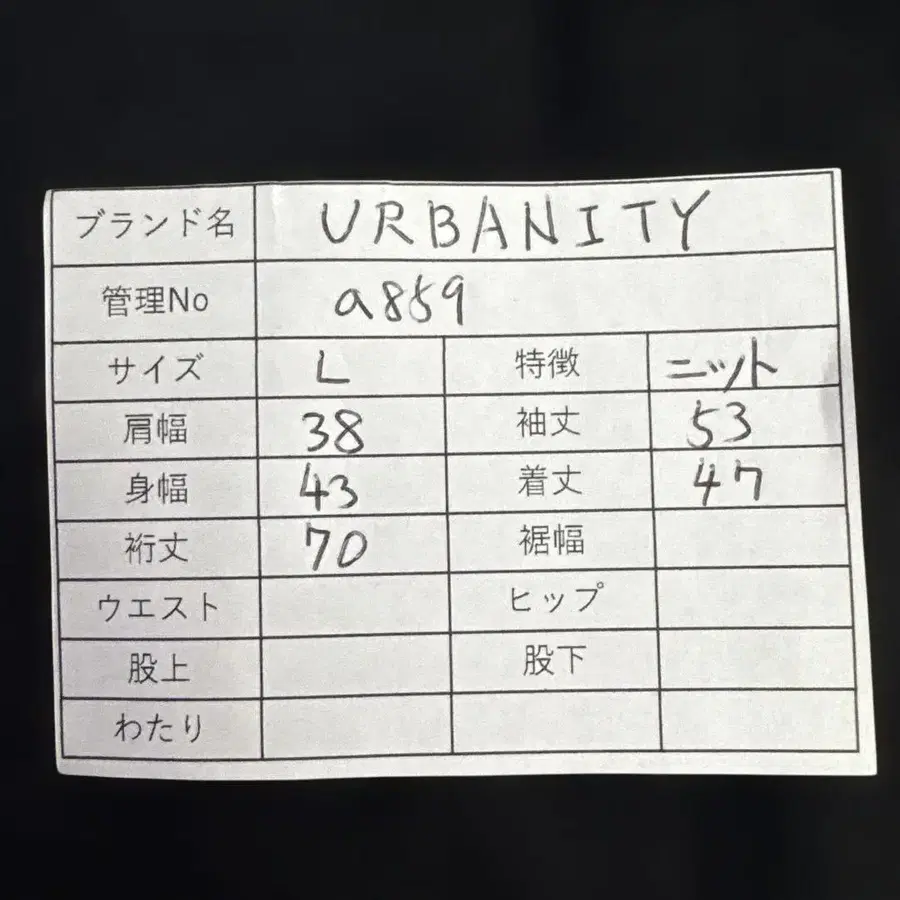 ブランド名 URBANITY
管理No a859
サイズ L 特徴 ニット
肩幅 38 袖丈 53
身幅 43 着丈 47
裄丈 70 裾幅
ウエスト ヒップ
股上 股下
わたり